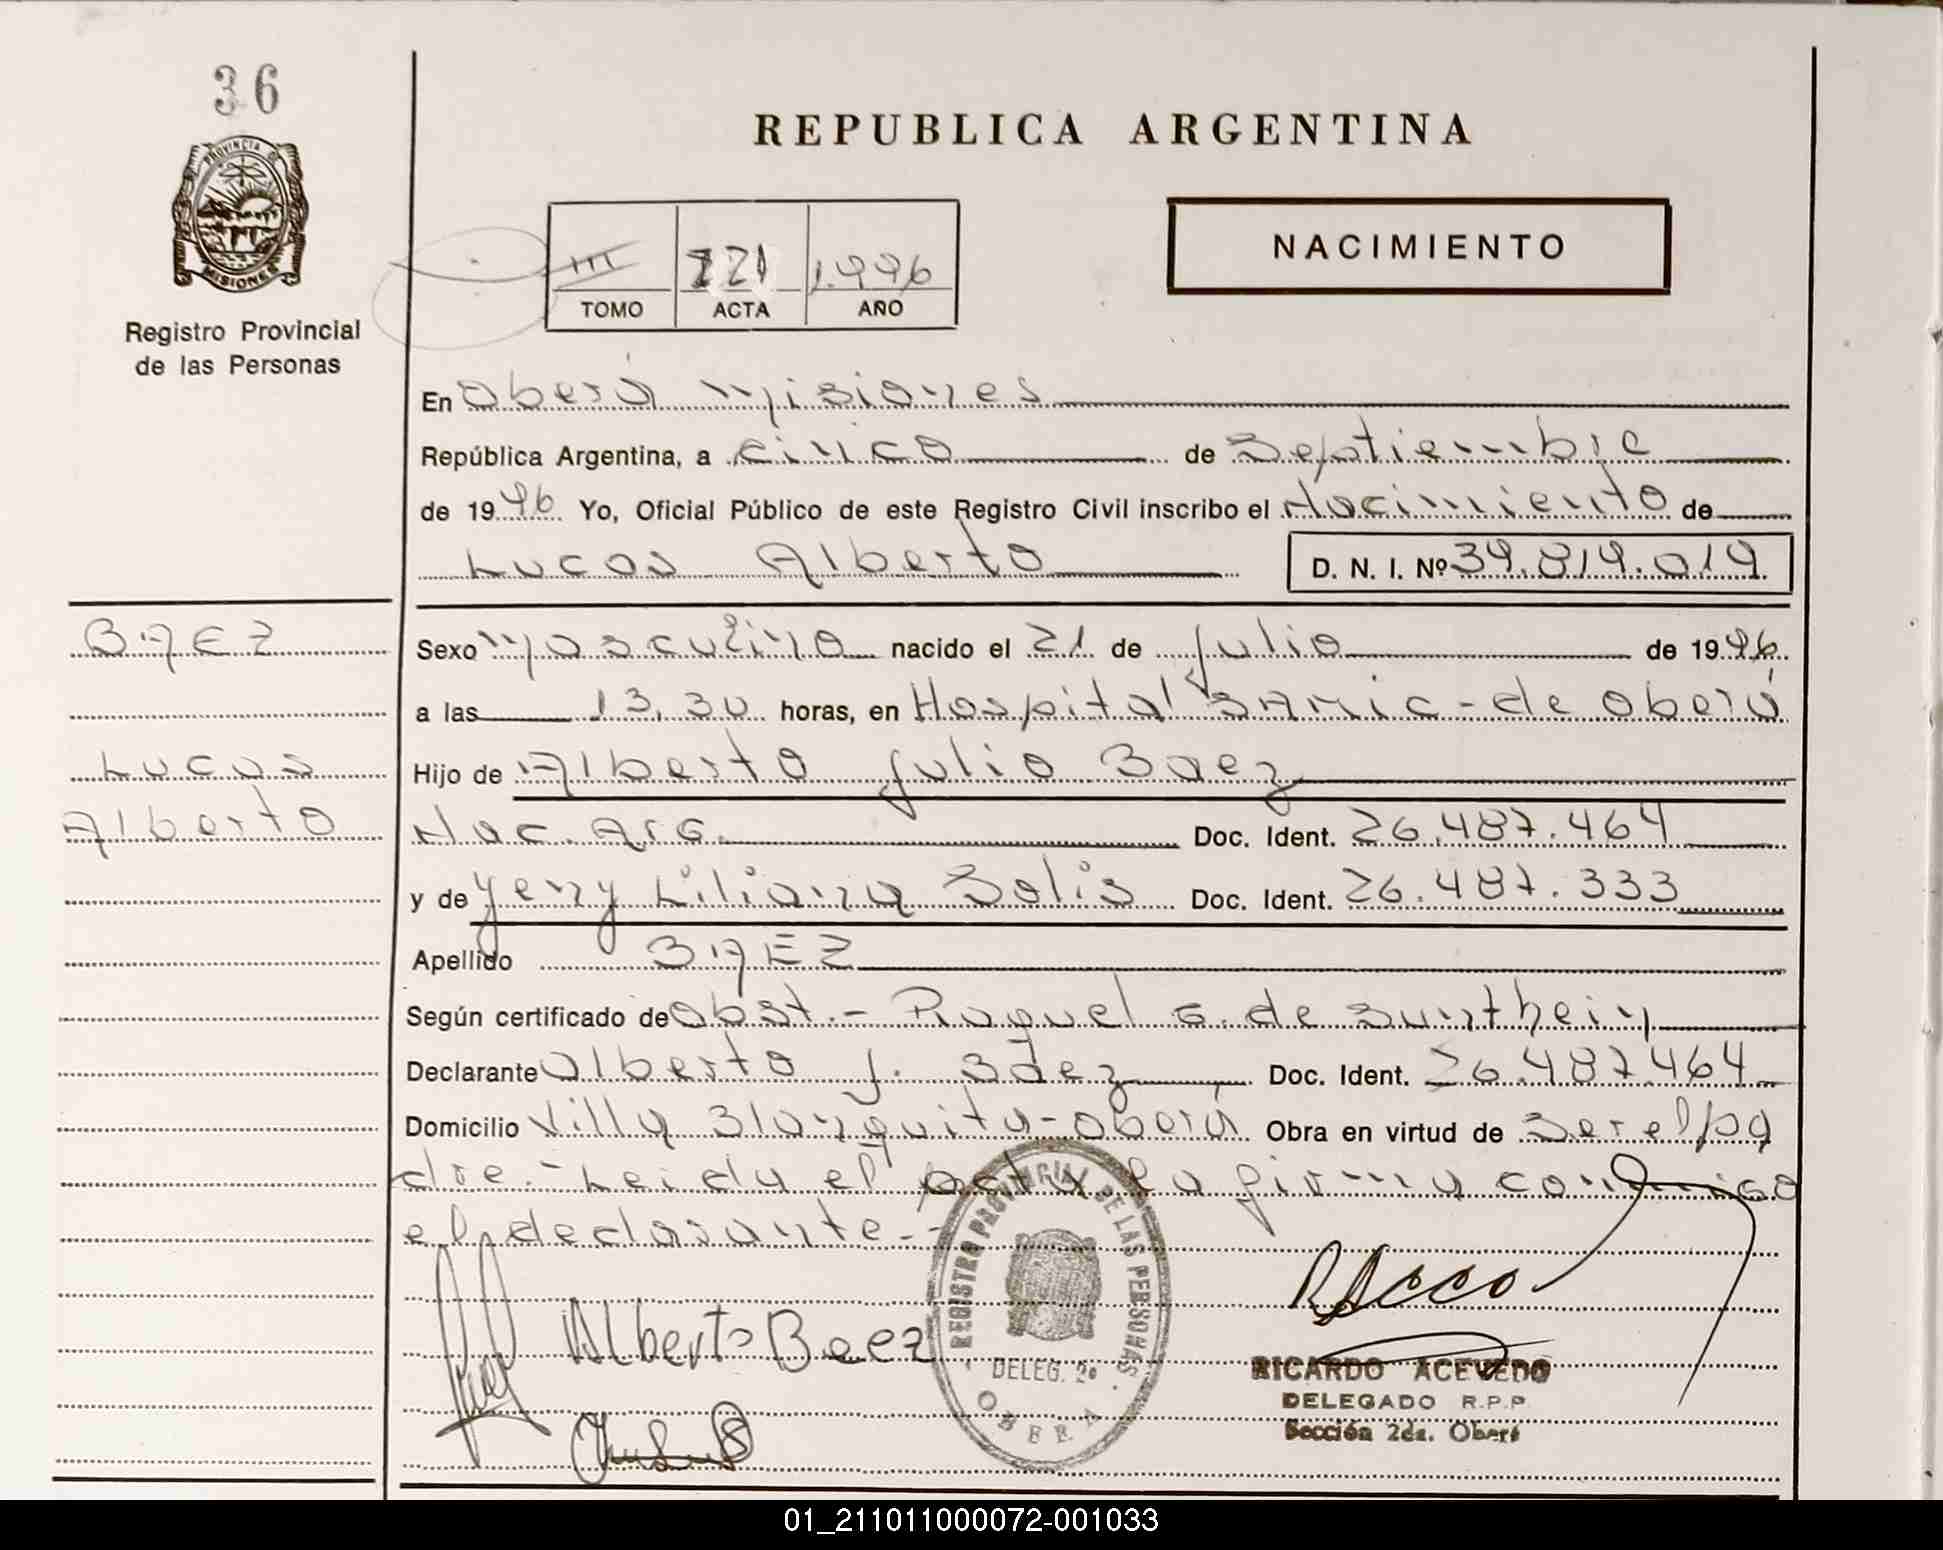 36
PROVINCIA DE
MISIONES
Registro Provincial
de las Personas
REPUBLICA ARGENTINA
III 221 1.996
TOMO ACTA AÑO
NACIMIENTO
En Oberá Misiones
República Argentina, a cinco de Septiembre
de 1996 Yo, Oficial Público de este Registro Civil inscribo el Nacimiento de
Lucas Alberto D. N. I. Nº 39.819.019
BAEZ
Lucas
Alberto
Sexo Masculino nacido el 21 de julio de 1996
a las 13,30 horas, en Hospital SAMIC - de Oberá
Hijo de Alberto Julio Baez
Nac. Arg. Doc. Ident. 26.487.464
y de Yeny Liliana Solis Doc. Ident. 26.487.333
Apellido BAEZ
Según certificado de Obst. - Raquel G. de
Declarante Alberto J. Baez Doc. Ident. 26.487.464
Domicilio Villa Blanquita - Oberá Obra en virtud de Ser el pa
dre. - Leida el acta la firma conmigo
el declarante. -
Alberto Baez
REGISTRO PROVINCIAL DE LAS PERSONAS
DELEG. 2a
OBERA
RICARDO ACEVEDO
DELEGADO R.P.P.
Sección 2da. Oberá
01_211011000072-001033